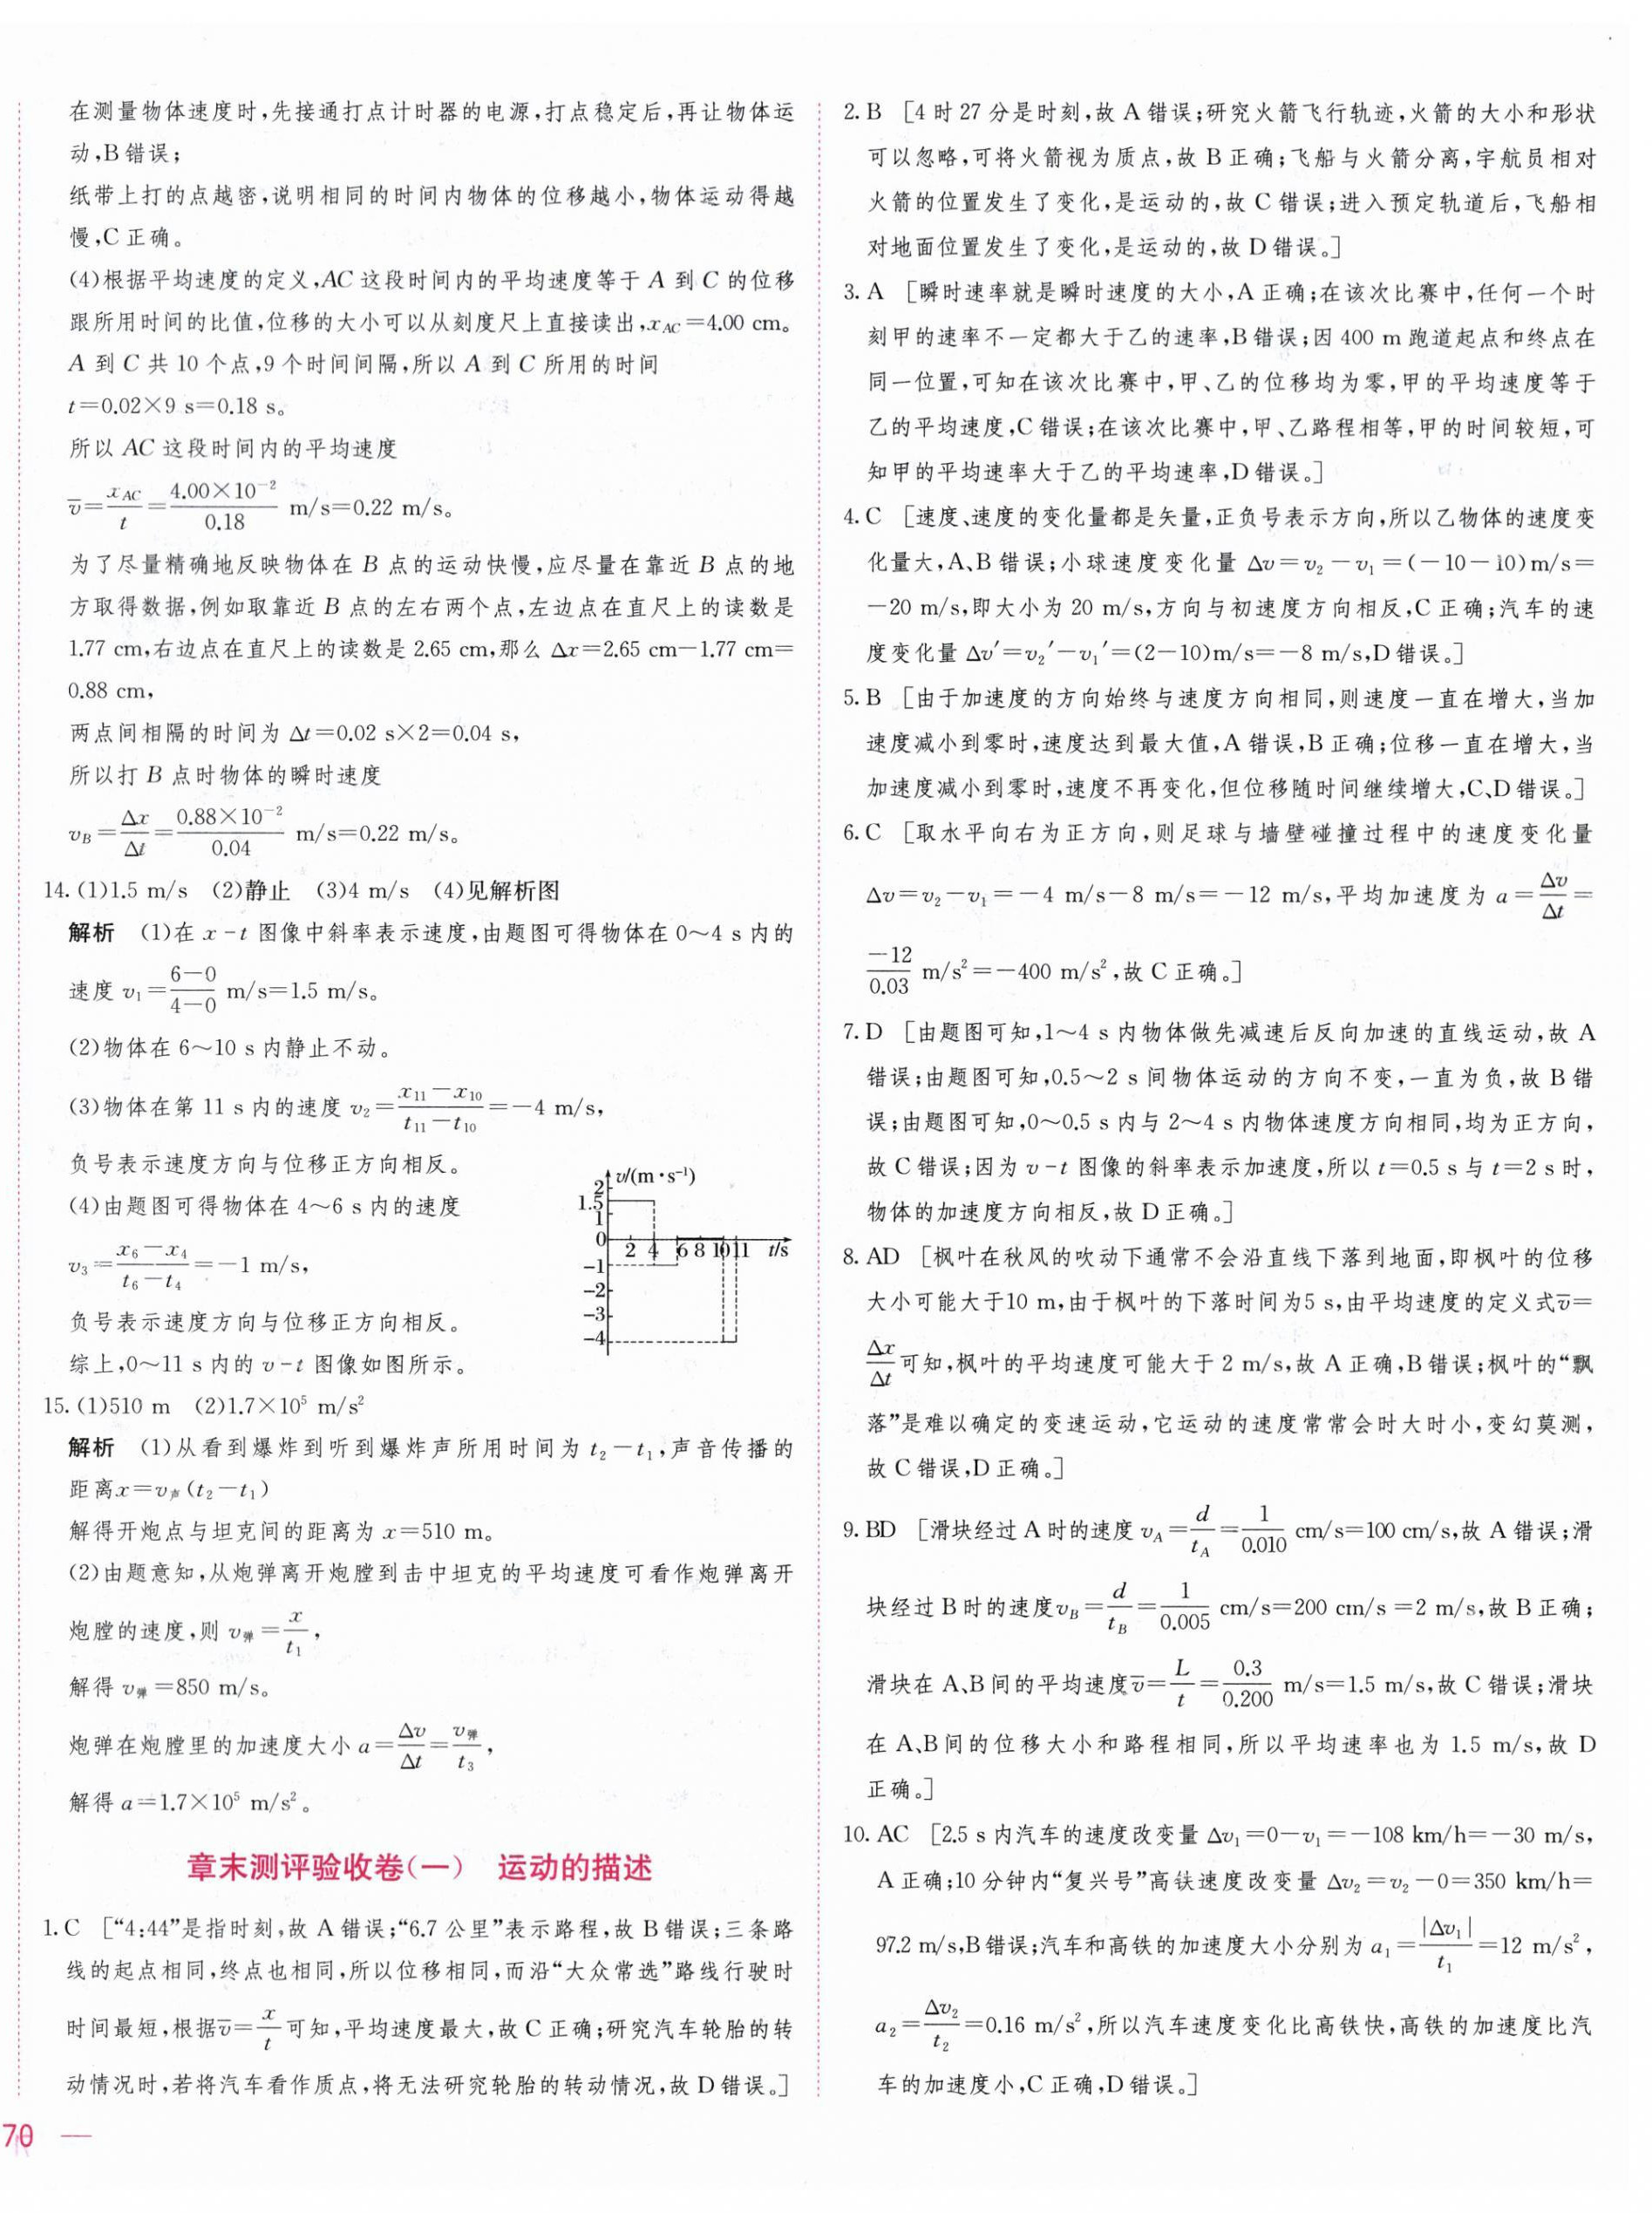 在测量物体速度时,先接通打点计时器的电源,打点稳定后,再让物体运
动,B错误;
纸带上打的点越密,说明相同的时间内物体的位移越小,物体运动得越
慢,C正确。
(4)根据平均速度的定义,AC这段时间内的平均速度等于A到C的位移
跟所用时间的比值,位移的大小可以从刻度尺上直接读出,x_AC=4.00 cm。
A到C共10个点,9个时间间隔,所以A到C所用的时间
t=0.02×9 s=0.18 s。
所以AC这段时间内的平均速度
v̅=x_AC/t=4.00×10⁻²/0.18 m/s=0.22 m/s。
为了尽量精确地反映物体在B点的运动快慢,应尽量在靠近B点的地
方取得数据,例如取靠近B点的左右两个点,左边点在直尺上的读数是
1.77 cm,右边点在直尺上的读数是2.65 cm,那么Δx=2.65 cm-1.77 cm=
0.88 cm,
两点间相隔的时间为Δt=0.02 s×2=0.04 s,
所以打B点时物体的瞬时速度
v_B=Δx/Δt=0.88×10⁻²/0.04 m/s=0.22 m/s。
14. (1)1.5 m/s (2)静止 (3)4 m/s (4)见解析图
解析 (1)在x-t图像中斜率表示速度,由题图可得物体在0~4 s内的
速度v₁=(6-0)/(4-0) m/s=1.5 m/s。
(2)物体在6~10 s内静止不动。
(3)物体在第11 s内的速度v₂=(x₁₁-x₁₀)/(t₁₁-t₁₀)=-4 m/s,
负号表示速度方向与位移正方向相反。
(4)由题图可得物体在4~6 s内的速度
v₃=(x₆-x₄)/(t₆-t₄)=-1 m/s,
负号表示速度方向与位移正方向相反。
综上,0~11 s内的v-t图像如图所示。
v/(m·s⁻¹)
2
1.5
1
0
2 4 6 8 10 11 t/s
-1
-2
-3
-4
15. (1)510 m (2)1.7×10⁵ m/s²
解析 (1)从看到爆炸到听到爆炸声所用时间为t₂-t₁,声音传播的
距离x=v声(t₂-t₁)
解得开炮点与坦克间的距离为x=510 m。
(2)由题意知,从炮弹离开炮膛到击中坦克的平均速度可看作炮弹离开
炮膛的速度,则v弹=x/t₁,
解得v弹=850 m/s。
炮弹在炮膛里的加速度大小a=Δv/Δt=v弹/t₃,
解得a=1.7×10⁵ m/s²。
章末测评验收卷(一) 运动的描述
1. C [“4:44”是指时刻,故A错误;“6.7公里”表示路程,故B错误;三条路
线的起点相同,终点也相同,所以位移相同,而沿“大众常选”路线行驶时
时间最短,根据v̅=x/t可知,平均速度最大,故C正确;研究汽车轮胎的转
动情况时,若将汽车看作质点,将无法研究轮胎的转动情况,故D错误。]
70
2. B [4时27分是时刻,故A错误;研究火箭飞行轨迹,火箭的大小和形状
可以忽略,可将火箭视为质点,故B正确;飞船与火箭分离,宇航员相对
火箭的位置发生了变化,是运动的,故C错误;进入预定轨道后,飞船相
对地面位置发生了变化,是运动的,故D错误。]
3. A [瞬时速率就是瞬时速度的大小,A正确;在该次比赛中,任何一个时
刻甲的速率不一定都大于乙的速率,B错误;因400 m跑道起点和终点在
同一位置,可知在该次比赛中,甲、乙的位移均为零,甲的平均速度等于
乙的平均速度,C错误;在该次比赛中,甲、乙路程相等,甲的时间较短,可
知甲的平均速率大于乙的平均速率,D错误。]
4. C [速度、速度的变化量都是矢量,正负号表示方向,所以乙物体的速度变
化量大,A、B错误;小球速度变化量Δv=v₂-v₁=(-10-10)m/s=
-20 m/s,即大小为20 m/s,方向与初速度方向相反,C正确;汽车的速
度变化量Δv′=v₂′-v₁′=(2-10)m/s=-8 m/s,D错误。]
5. B [由于加速度的方向始终与速度方向相同,则速度一直在增大,当加
速度减小到零时,速度达到最大值,A错误,B正确;位移一直在增大,当
加速度减小到零时,速度不再变化,但位移随时间继续增大,C、D错误。]
6. C [取水平向右为正方向,则足球与墙壁碰撞过程中的速度变化量
Δv=v₂-v₁=-4 m/s-8 m/s=-12 m/s,平均加速度为a=Δv/Δt=
-12/0.03 m/s²=-400 m/s²,故C正确。]
7. D [由题图可知,1~4 s内物体做先减速后反向加速的直线运动,故A
错误;由题图可知,0.5~2 s间物体运动的方向不变,一直为负,故B错
误;由题图可知,0~0.5 s内与2~4 s内物体速度方向相同,均为正方向,
故C错误;因为v-t图像的斜率表示加速度,所以t=0.5 s与t=2 s时,
物体的加速度方向相反,故D正确。]
8. AD [枫叶在秋风的吹动下通常不会沿直线下落到地面,即枫叶的位移
大小可能大于10 m,由于枫叶的下落时间为5 s,由平均速度的定义式v̅=
Δx/Δt可知,枫叶的平均速度可能大于2 m/s,故A正确,B错误;枫叶的“飘
落”是难以确定的变速运动,它运动的速度常常会时大时小,变幻莫测,
故C错误,D正确。]
9. BD [滑块经过A时的速度v_A=d/t_A=1/0.010 cm/s=100 cm/s,故A错误;滑
块经过B时的速度v_B=d/t_B=1/0.005 cm/s=200 cm/s=2 m/s,故B正确;
滑块在A、B间的平均速度v̅=L/t=0.3/0.200 m/s=1.5 m/s,故C错误;滑块
在A、B间的位移大小和路程相同,所以平均速率也为1.5 m/s,故D
正确。]
10. AC [2.5 s内汽车的速度改变量Δv₁=0-v₁=-108 km/h=-30 m/s,
A正确;10分钟内“复兴号”高铁速度改变量Δv₂=v₂-0=350 km/h=
97.2 m/s,B错误;汽车和高铁的加速度大小分别为a₁=|Δv₁|/t₁=12 m/s²,
a₂=Δv₂/t₂=0.16 m/s²,所以汽车速度变化比高铁快,高铁的加速度比汽
车的加速度小,C正确,D错误。]